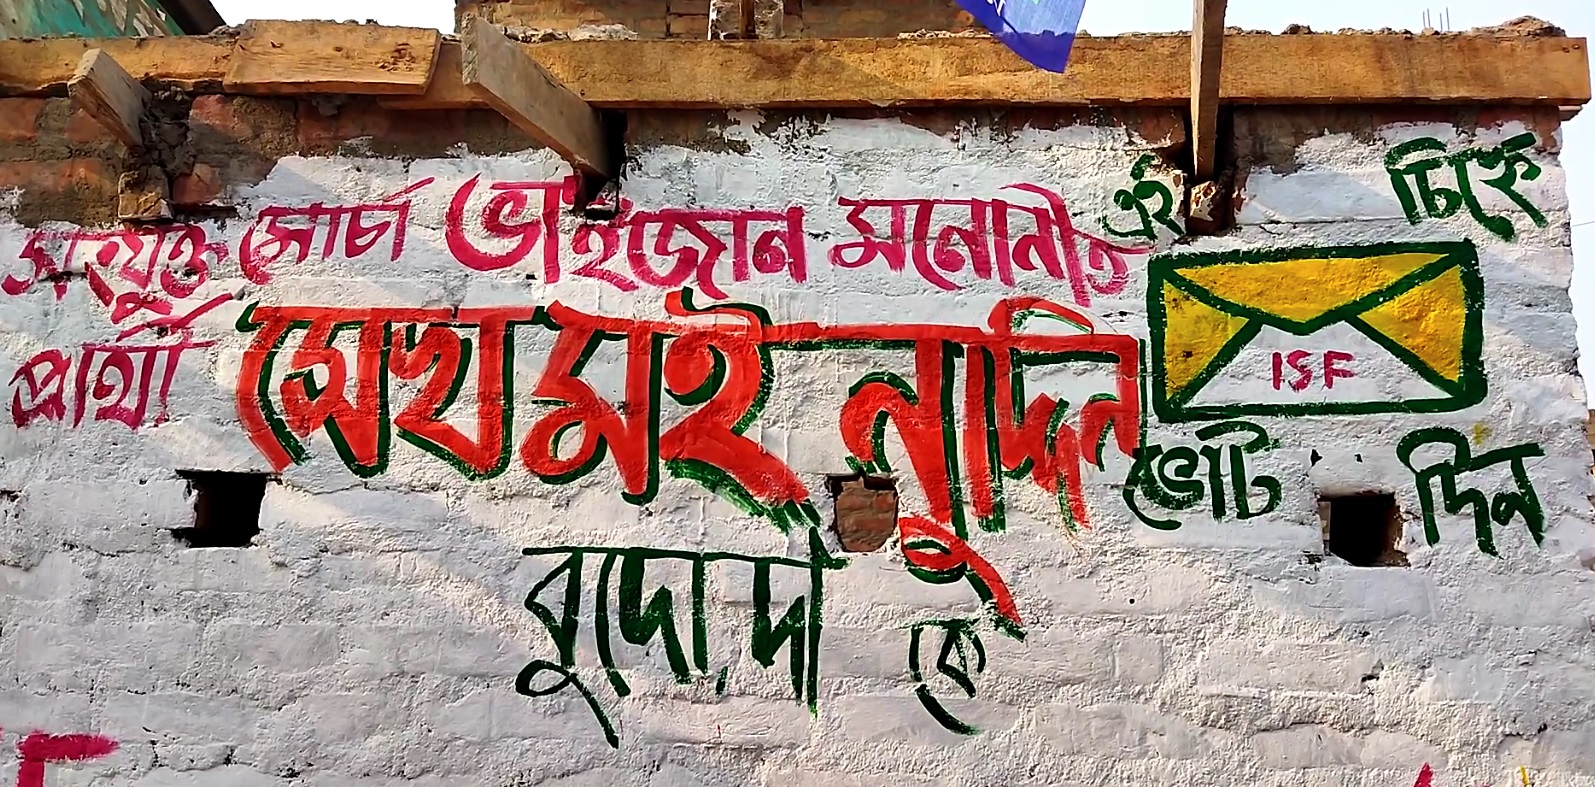 সংযুক্ত মোর্চা ভাইজান মনোনীত
প্রার্থী সেখ মইনুদ্দিন
বুদো, দা কে
এই চিহ্নে
ISF
ভোট দিন